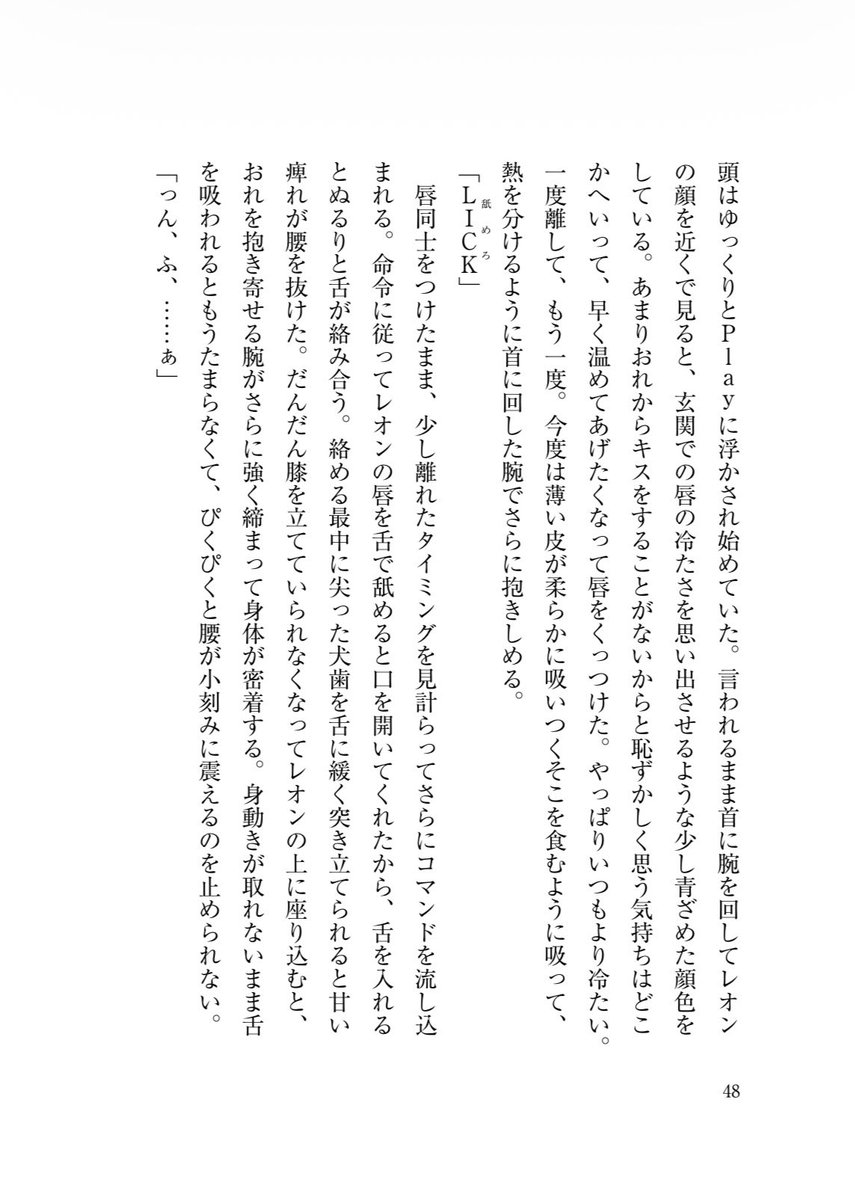 頭はゆっくりとPlayに浮かされ始めていた。言われるまま首に腕を回してレオン
の顔を近くで見ると、玄関での唇の冷たさを思い出させるような少し青ざめた顔色を
している。あまりおれからキスをすることがないからと恥ずかしく思う気持ちはどこ
かへいって、早く温めてあげたくなって唇をくっつけた。やっぱりいつもより冷たい。
一度離して、もう一度。今度は薄い皮が柔らかに吸いつくそこを食むように吸って、
熱を分けるように首に回した腕でさらに抱きしめる。
舐めろ
「LICK」
唇同士をつけたまま、少し離れたタイミングを見計らってさらにコマンドを流し込
まれる。命令に従ってレオンの唇を舌で舐めると口を開いてくれたから、舌を入れる
とぬるりと舌が絡み合う。絡める最中に尖った犬歯を舌に緩く突き立てられると甘い
痺れが腰を抜けた。だんだん膝を立てていられなくなってレオンの上に座り込むと、
おれを抱き寄せる腕がさらに強く締まって身体が密着する。身動きが取れないまま舌
を吸われるともうたまらなくて、ぴくぴくと腰が小刻みに震えるのを止められない。
「っん、ふ、……ぁ」
48